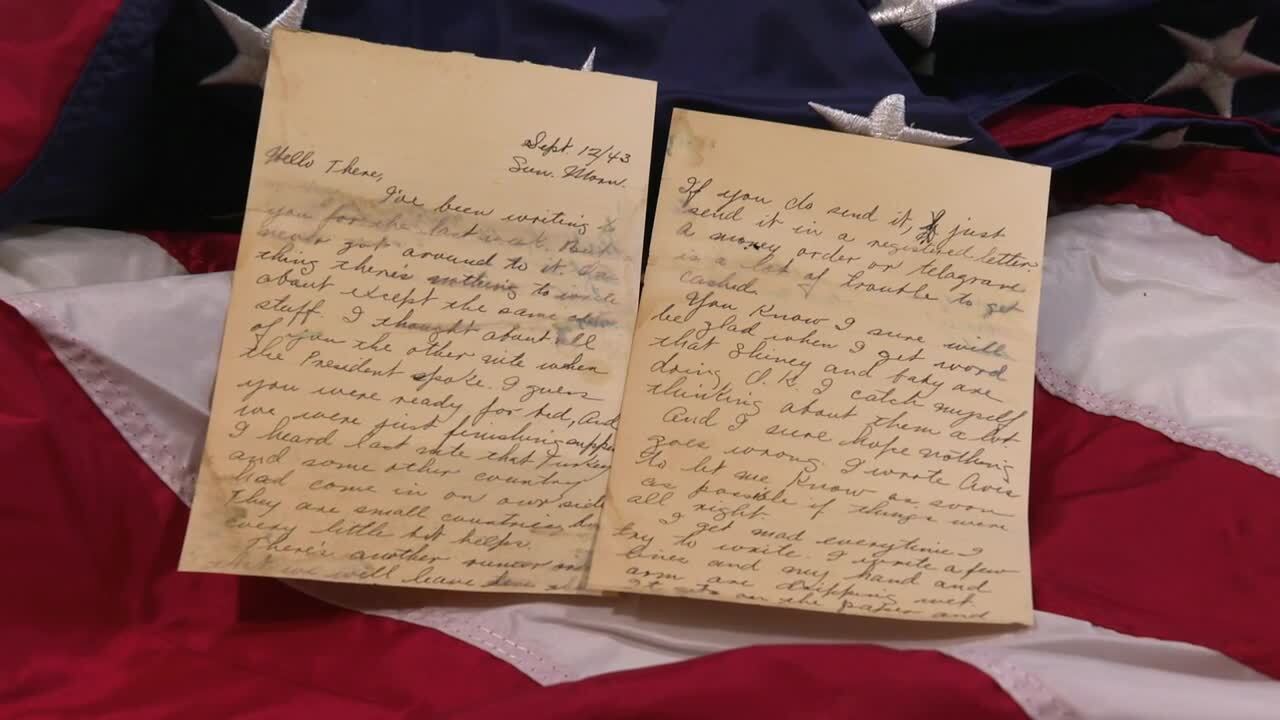 Sept. 12/43
Sun. Morn.
Hello There,
I've been writing to
you for the last week. But
never got around to it. One
thing there's nothing to write
about except the same
stuff. I thought about all
of you the other nite when
the President spoke. I guess
you were ready for bed, and
we were just finishing supper
I heard last nite that Turkey
and some other country
had come in on our side
They are small countries, but
every little bit helps.
There's another rumor
that we will leave
If you do send it, just
send it in a registered letter
A money order or telagram
is a lot of trouble to get
cashed.
You know I sure will
be glad when I get word
that Shiney and baby are
doing O.K. I catch myself
thinking about them a lot
And I sure hope nothing
goes wrong. I wrote Avis
to let me know as soon
as possible if things were
all right.
I get mad everytime I
try to write. I write a few
lines and my hand and
arm are dripping wet.
It gets on the paper and